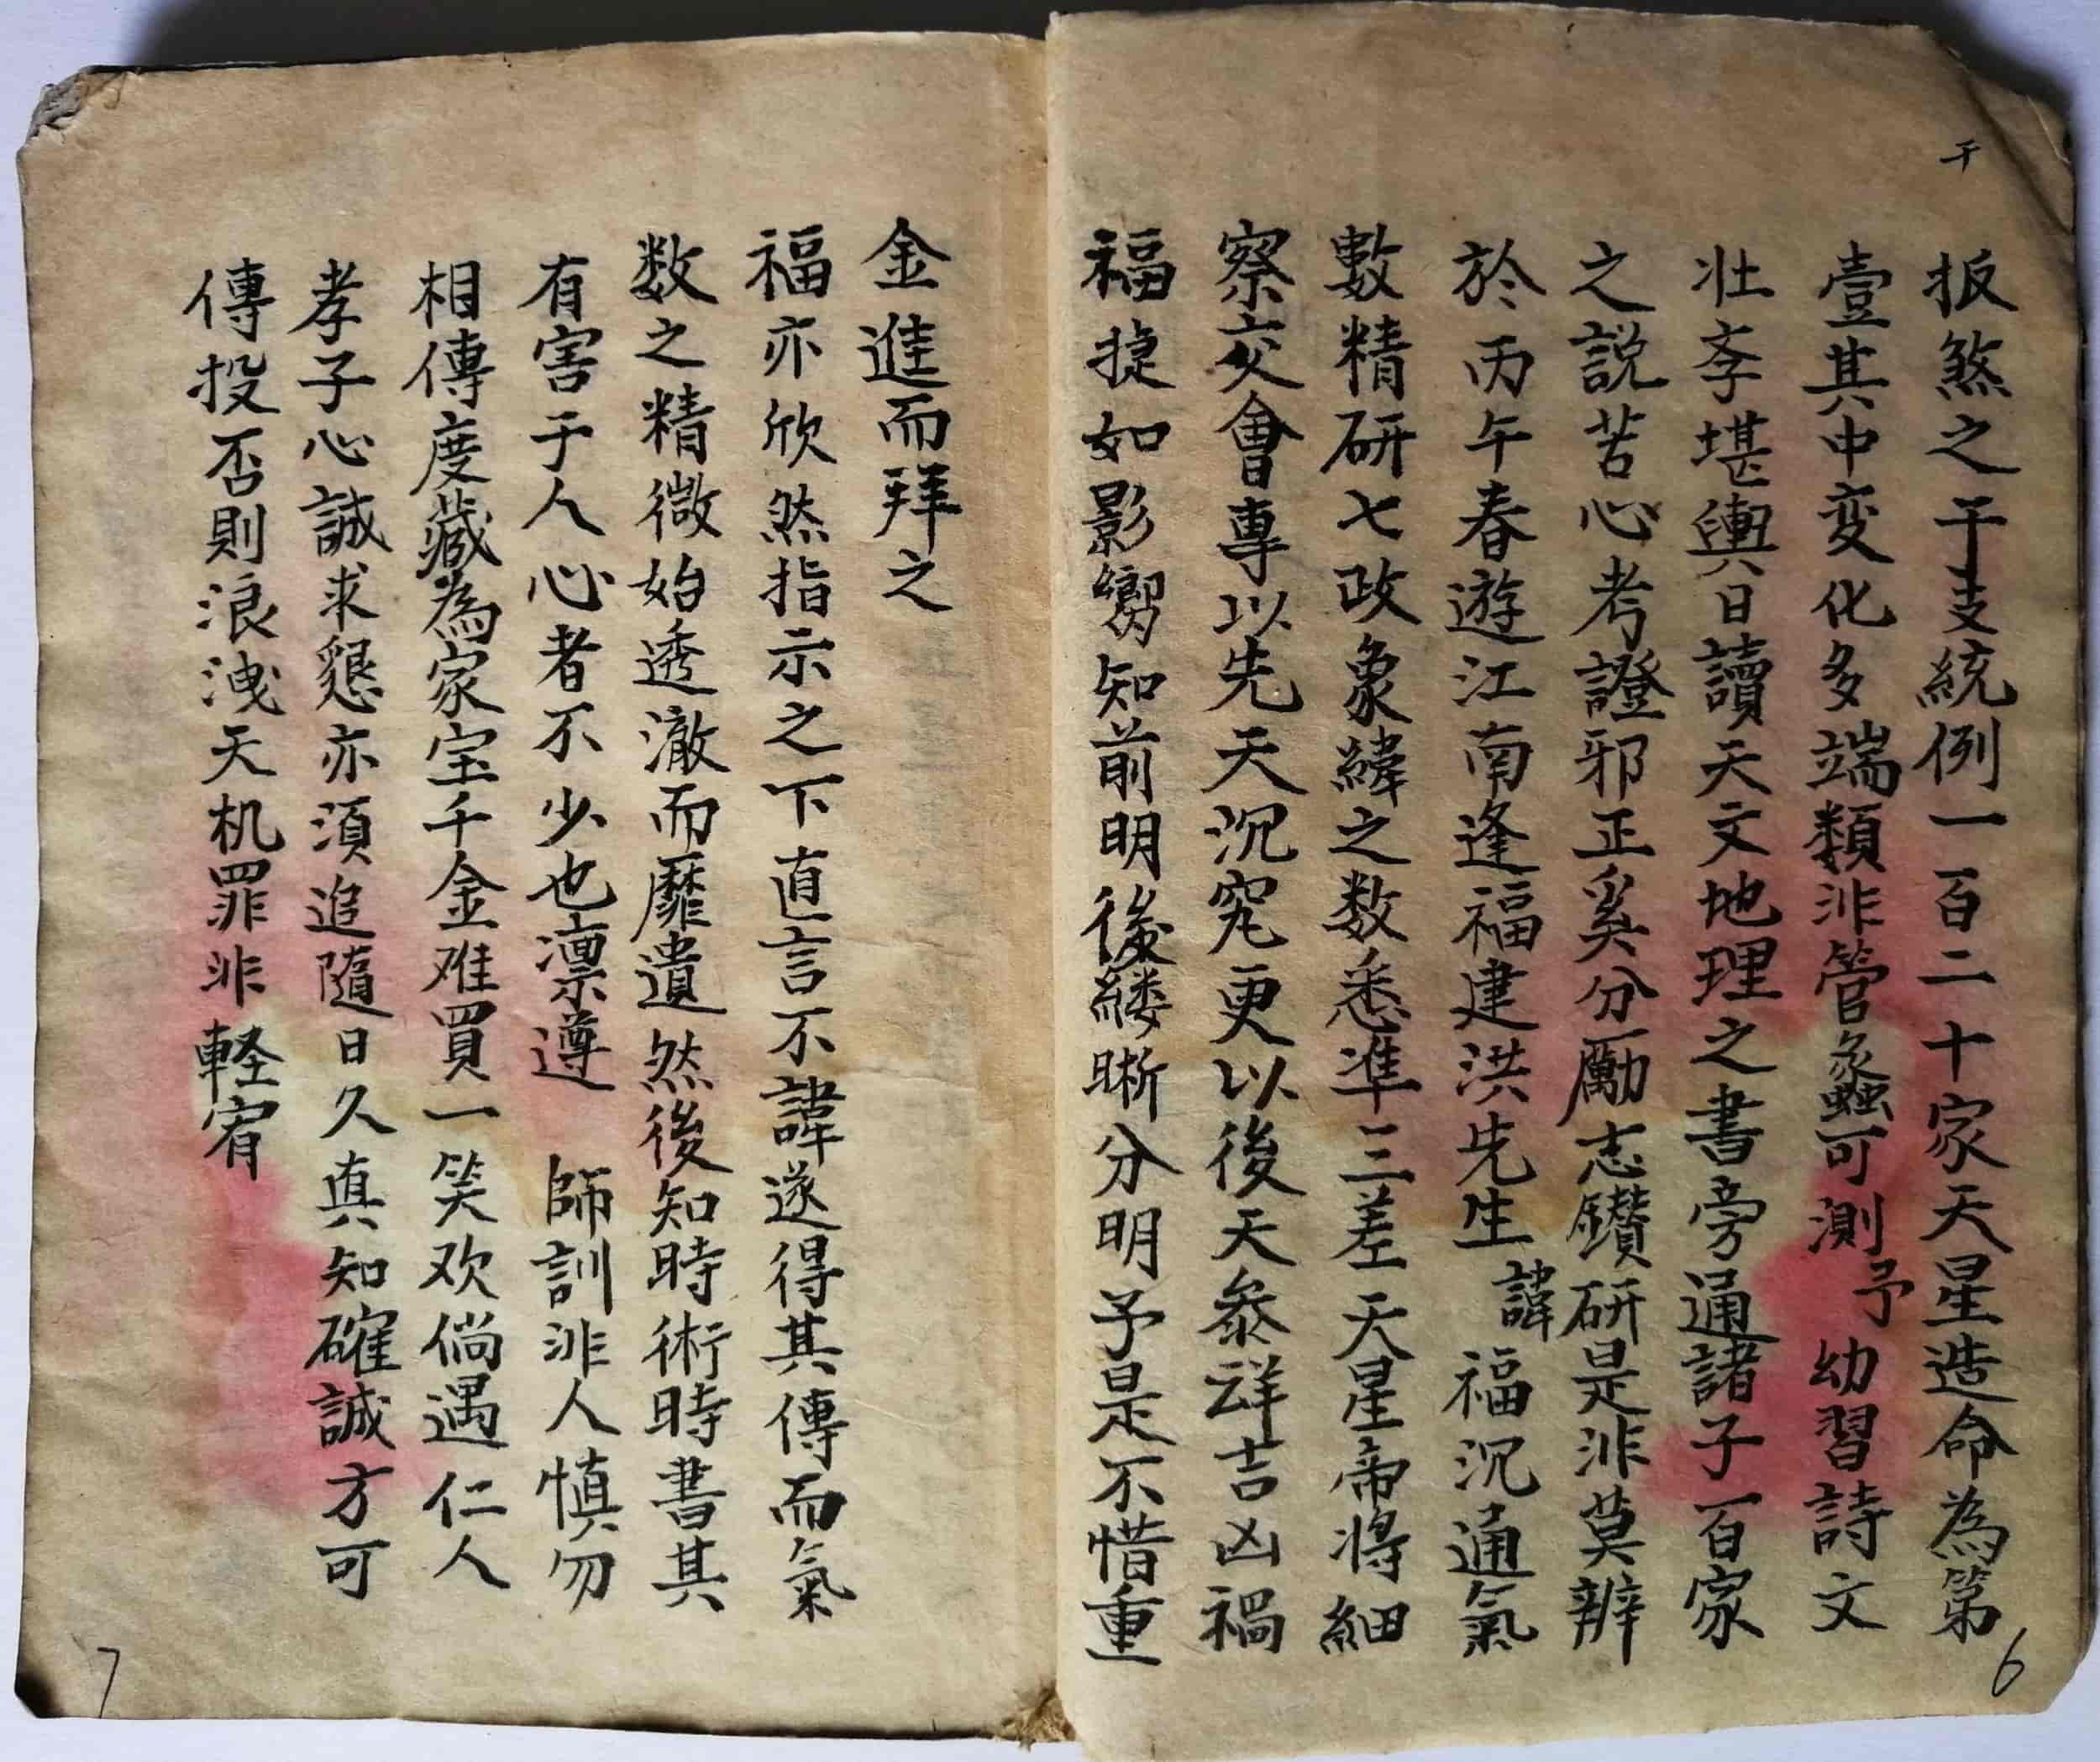 干
扳煞之干支統例一百二十家天星造命為第
壹其中变化多端類非管蠡可測予幼習詩文
壮斈堪輿日讀天文地理之書旁通諸子百家
之説苦心考證邪正奚分勵志鑽研是非莫辨
於丙午春遊江南逢福建洪先生諱福沉通氣
數精研七政象緯之数悉準三差天星帝将细
察交會專以先天沉究更以後天叅詳吉凶禍
福捷如影嚮知前明後縷晰分明予是不惜重
6
金進而拜之
福亦欣然指示之下直言不諱遂得其傳而氣
数之精微始透澈而靡遺然後知時術時書其
有害于人心者不少也凛遵師訓非人慎勿
相傳度藏為家宝千金难買一笑欢倘遇仁人
孝子心誠求懇亦須追隨日久真知確誠方可
傳投否則浪洩天机罪非軽宥
7